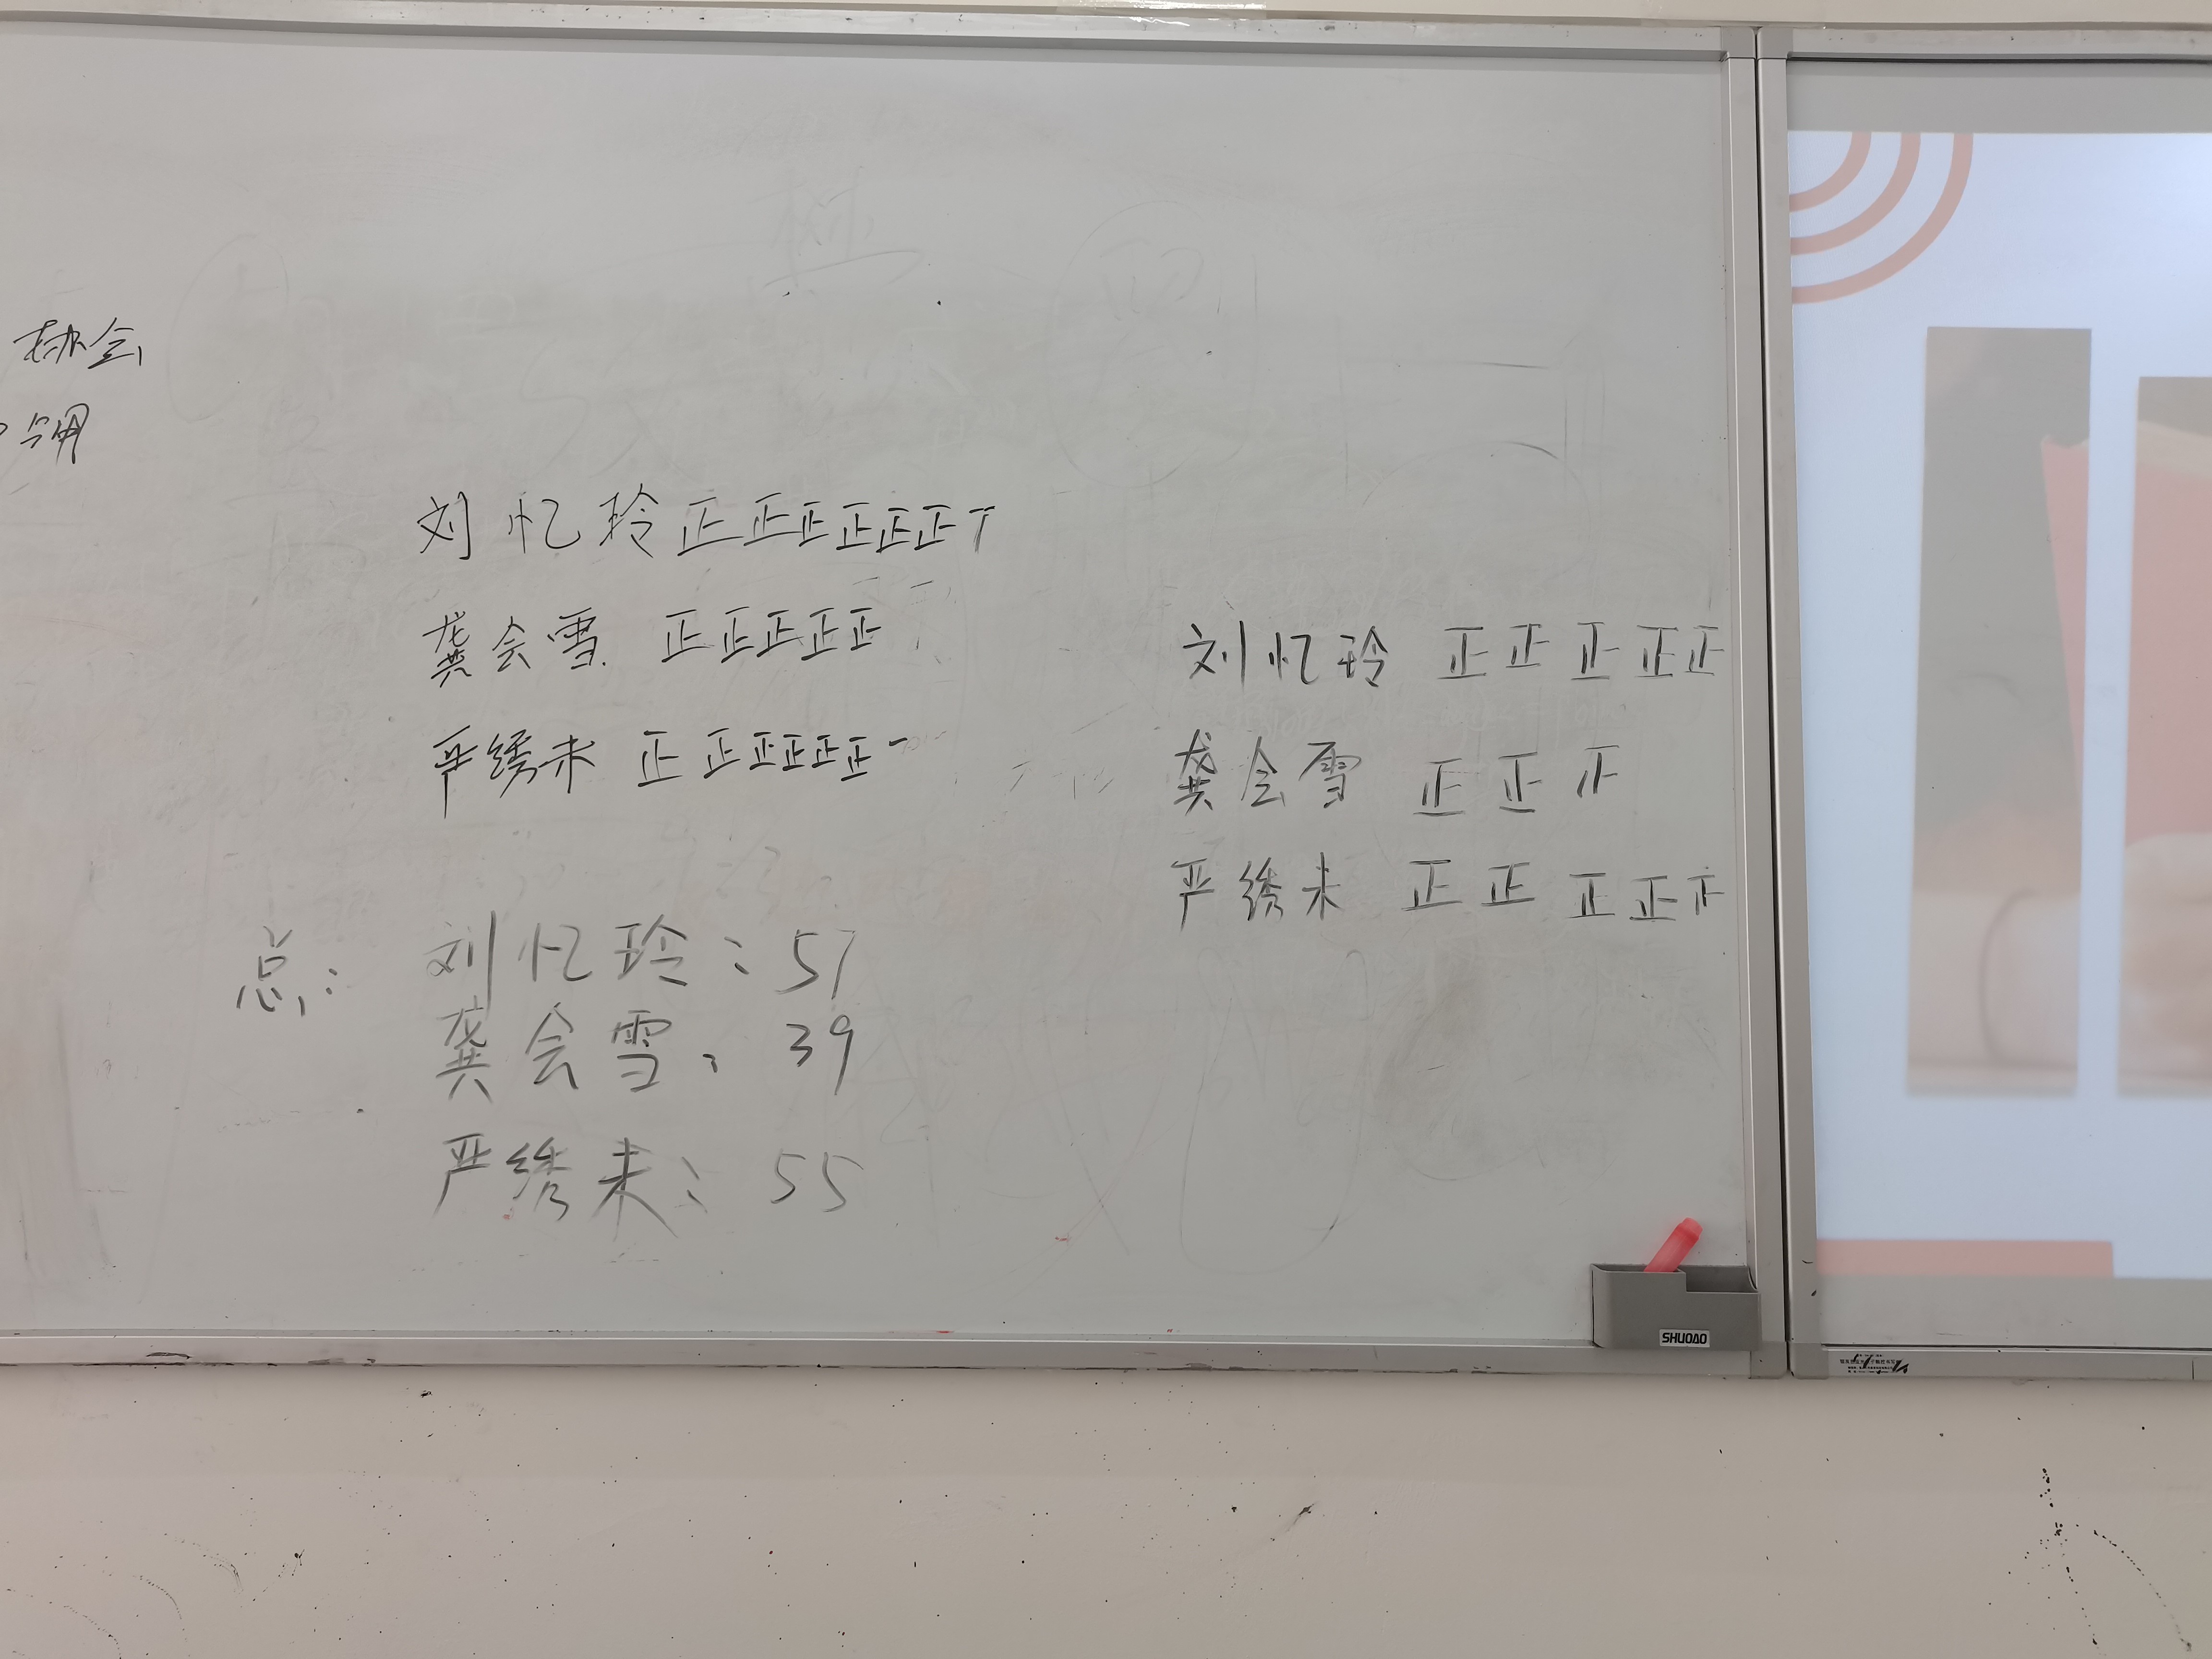 协会
刘忆玲 正正正正正正丅
龚会雪 正正正正正
严绣未 正正正正正正一
刘忆玲 正正正正正
龚会雪 正正正
严绣未 正正正正正
总：
刘忆玲：57
龚会雪：39
严绣未：55
SHUOAO